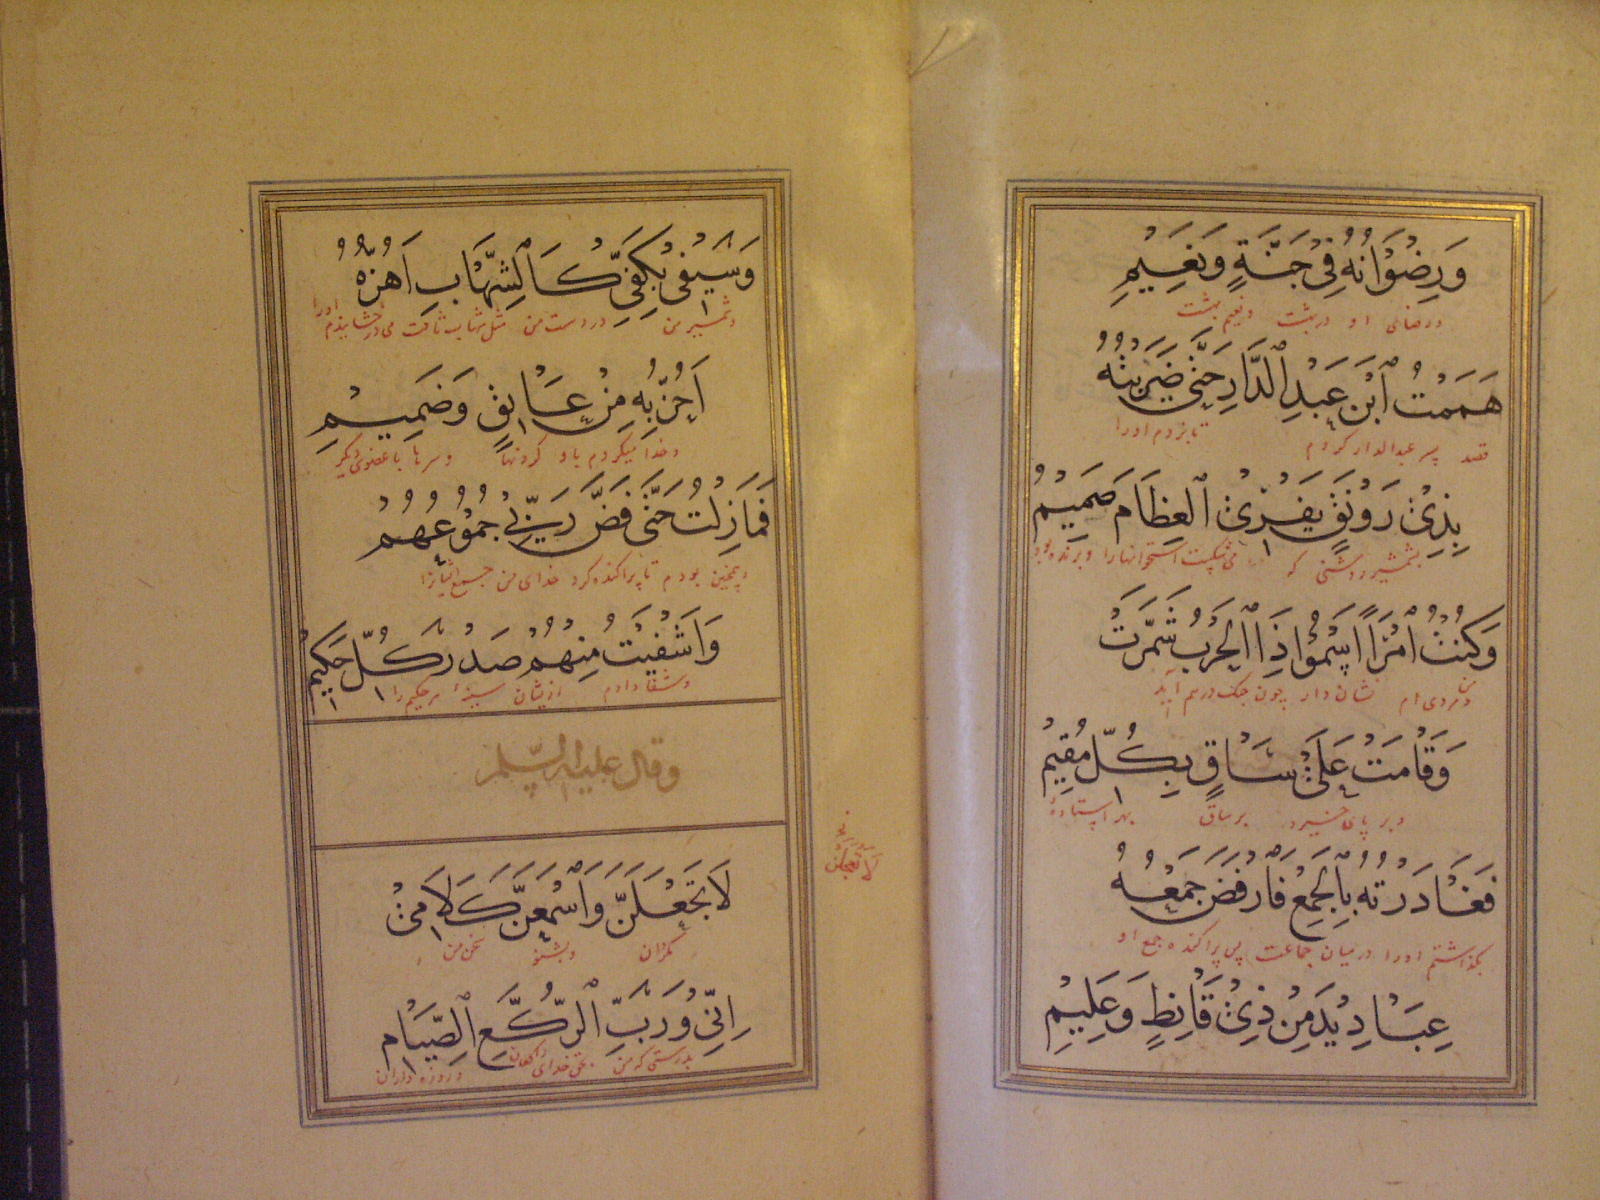 وَرِضْوَانُهُ فِي جَنَّةٍ وَنَعِيمِ
ورضای او در بهشت ونعیم بهشت
هَمَمْتُ ٱبْنَ عَبْدِ ٱلدَّارِ حَتَّى ضَرَبْتُهُ
قصد پسر عبدالدار کردم تا بزدم اورا
بِذِي رَوْنَقٍ يَفْرِي ٱلْعِظَامَ صَمِيمُ
بشمشیر روشنی که می شکست استخوانها را وبرنده بود
وَكُنْتُ ٱمْرَأً أَسْمُو إِذَا ٱلْحَرْبُ شَمَّرَتْ
ومردی ام نشان دار چون جنک درهم آید
وَقَامَتْ عَلَى سَاقٍ بِكُلِّ مُقِيمُ
وبر پای خیزد بر ساق بهر ایستادۀ
فَغَادَرْتُهُ بِٱلْجَمْعِ فَٱرْفَضَّ جَمْعُهُ
بگذاشتم اورا درمیان جماعت پس پراکنده جمع او
عِبَادِيدَ مِنْ ذِي قَانِطٍ وَعَلِيمِ
وَسَيْفِي بِكَفِّي كَٱلشِّهَابِ أَهُزُّهُ
وشمشیر من در دست من مثل شهاب ثاقب می درخشانیدم اورا
أَحُزُّ بِهِ مِنْ عَاتِقٍ وَصَمِيمِ
وجدا میکردم باو کردنها وسرها با عضوی دیگر
فَمَا زِلْتُ حَتَّى فَضَّ رَبِّي جُمُوعُهُمْ
وهمچنین بودم تا پراکنده کرد خدای من جمع ایشانرا
وَأَشْفَيْتُ مِنْهُمْ صَدْرَ كُلِّ حَكِيمُ
وشفا دادم از ایشان سینۀ هر حکیم را
وقال عليه السلم
لَا تَجْعَلَنَّ وَٱسْمَعَنَّ كَلَامِي
وبشنو سخن من
إِنِّي وَرَبِّ ٱلرُّكَّعِ ٱلصِّيَامِ
بدرستی که من بحق خدای راکعان وروزه داران
لَا تَعْجَلَنَّ